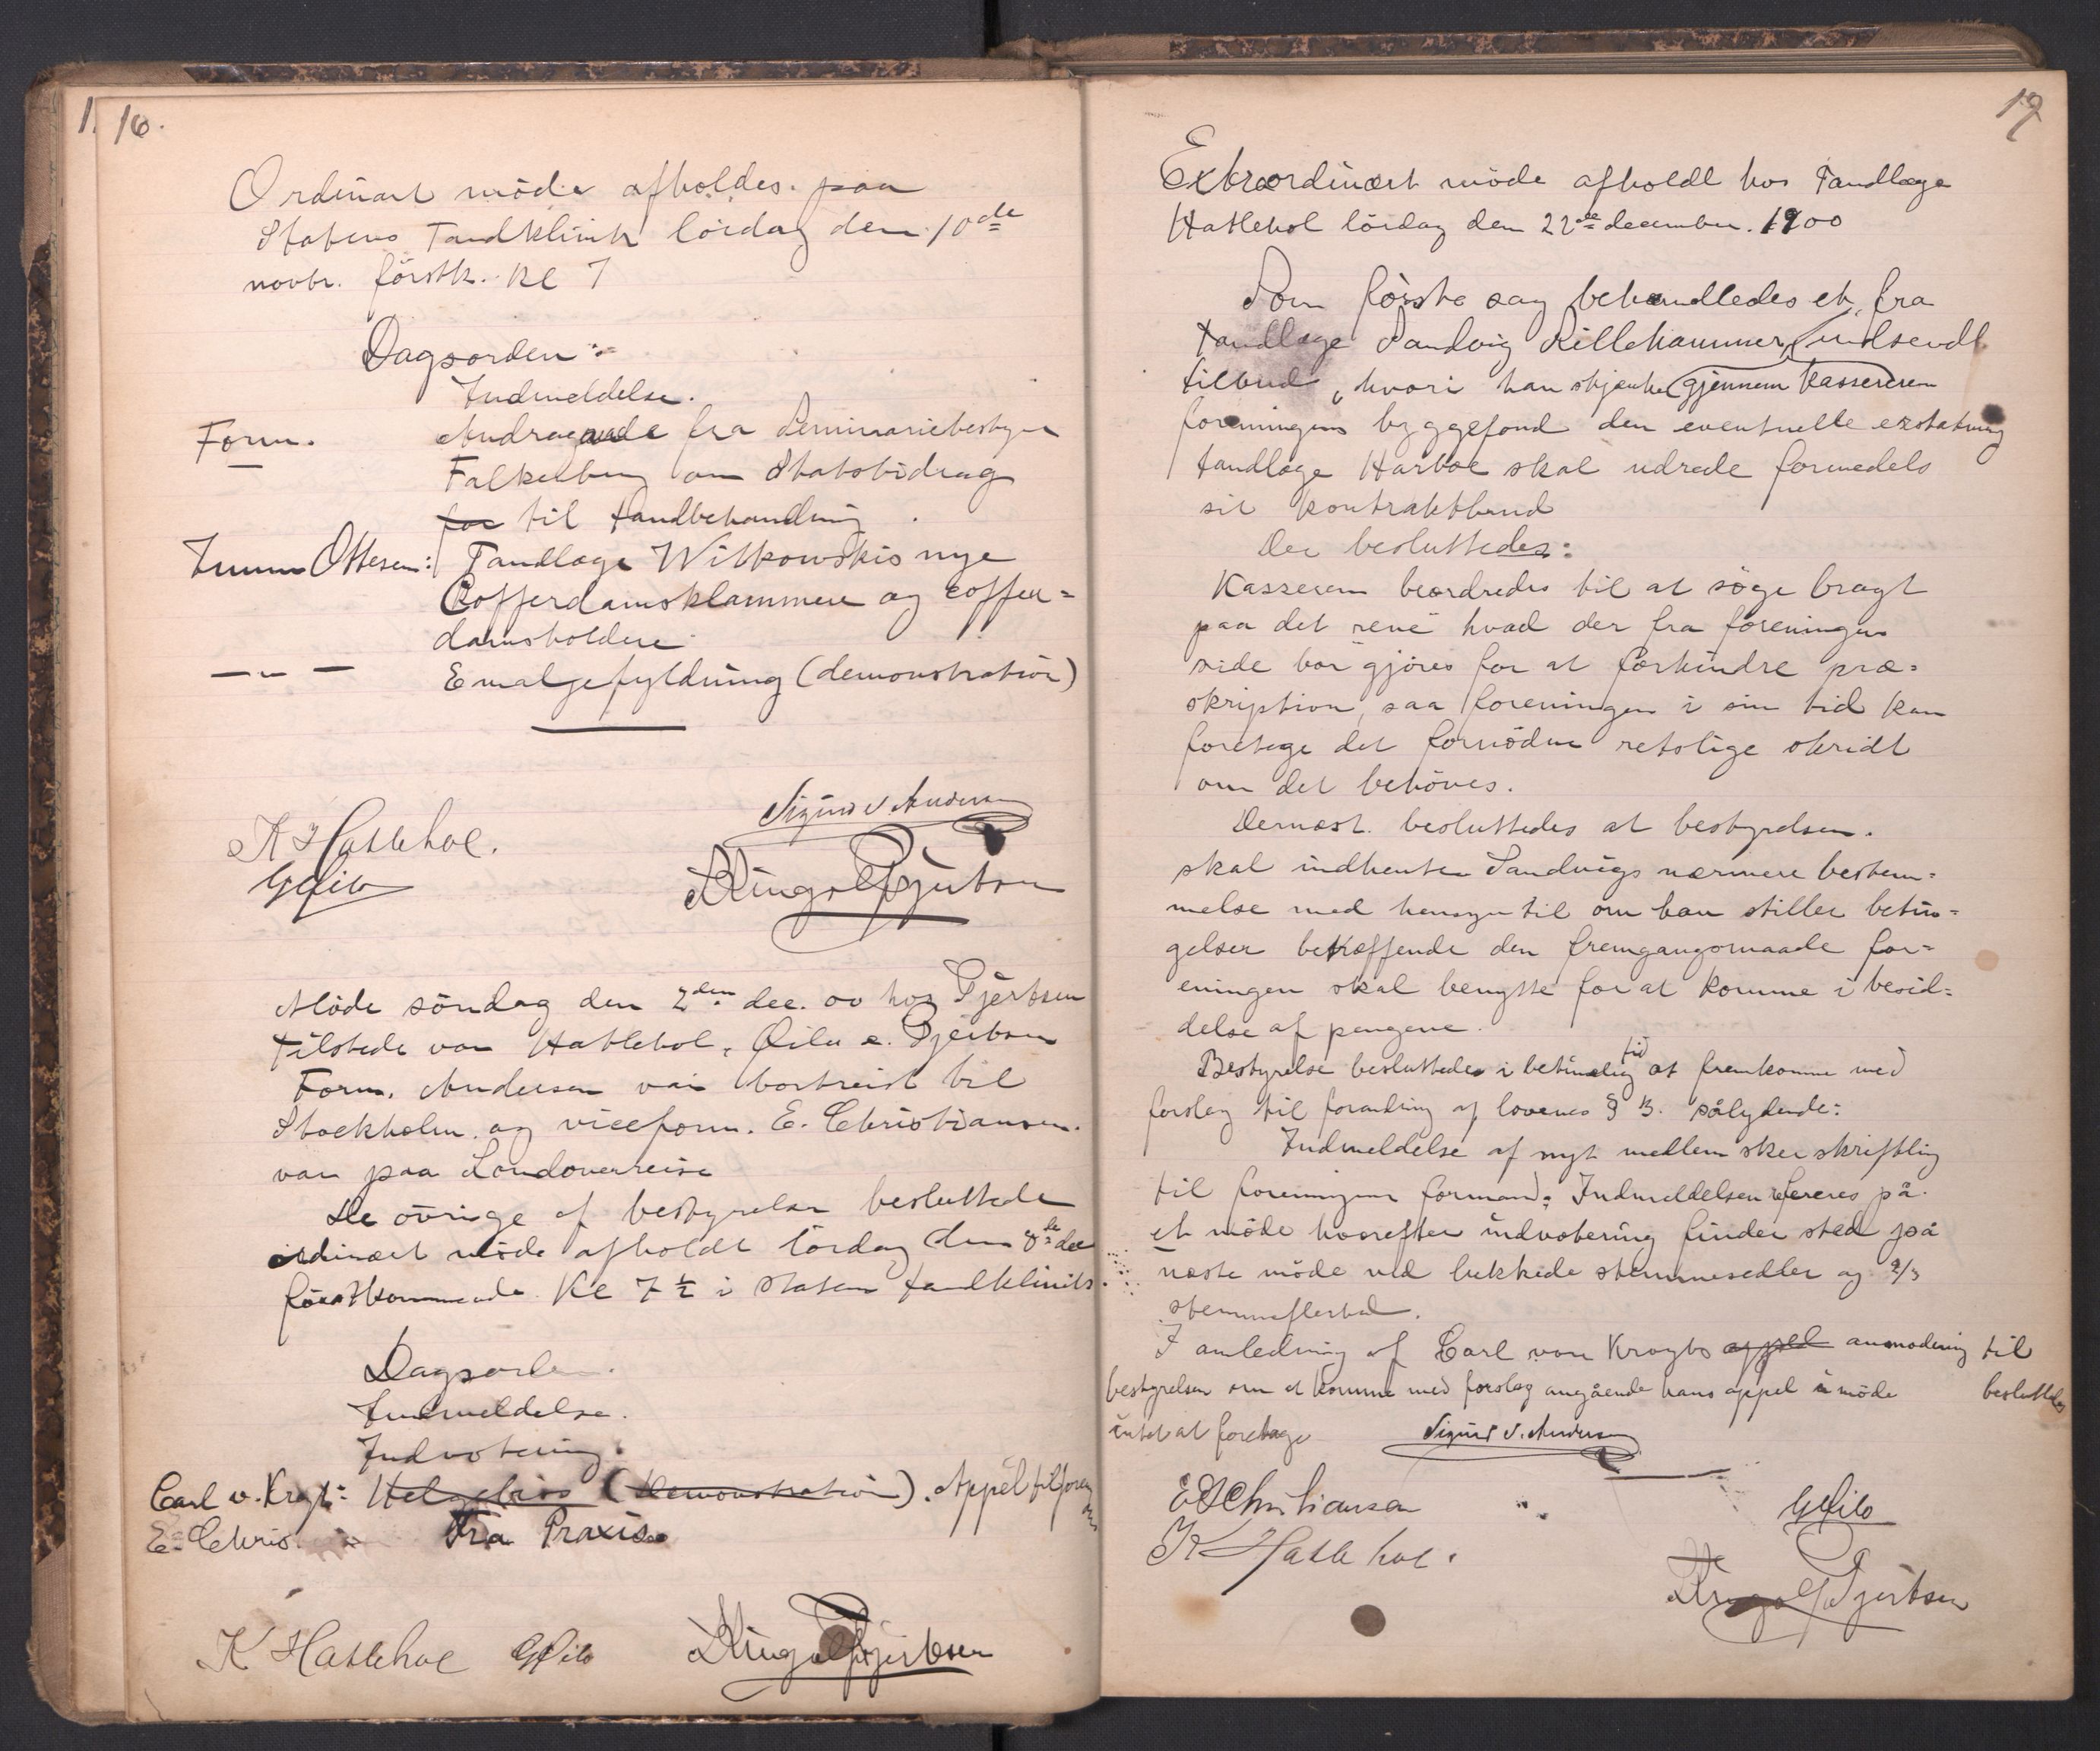 16.
Ordinært möde afholdes paa
Statens Tandklinik lördag den 10de
novbr. förstk. Kl 7
Dagsorden:
Indmeldelse.
Form. Andragende fra Seminariebestyrer
Falkelberg om Statsbidrag
for til tandbehandling.
Ottesen: Tandlæge Witkowskis nye
Cofferdamsklammere og coffer=
damsholdere
— " — Emaljefyldning (demonstration)
Sigurd S. Andersen
K Hatlehol.
GQile
Gjertsen
Möde söndag den 2den dec. 00 hos Gjertsen
tilstede var Hatlehol, Qile e. Gjertsen
Form. Andersen var bortreist til
Stockholm og viceform. E. Christiansen.
var paa Landoverreise
De övrige af bestyrelsen besluttede
ordinært möde afholdt lördag den 8de dec
förstkommende Kl 7 ½ i Statens tandklinik.
Dagsorden.
Indmeldelse.
Indvotering.
Carl v. Krogh: (Demonstration). Appel til foren
E. Chris. Fra Praxis.
K Hatlehol GQile Gjertsen
17
Extraordinært möde afholdt hos Tandlæge
Hatlehol lördag den 22de december. 1900
Som förste sag behandledes et fra
tandlæge Sandvig Lillehammer, indsendt
tilbud, hvori han skjænker gjennem kassereren
foreningens byggefond den eventuelle erstatning
tandlæge Harboe skal udrede formedels
sit kontraktbrud
Der besluttedes:
Kasseren beordredes til at söge bragt
paa det rene hvad der fra foreningens
side bör gjöres for at forhindre præ=
skription, saa foreningen i sin tid kan
foretage det fornödne retslige skridt
om det behöves.
Dernæst besluttedes at bestyrelsen.
skal indhente Sandvigs nærmere bestem=
melse med hensyn til om han stiller betin=
gelser betræffende den fremgangsmaade for=
eningen skal benytte for at komme i besid=
delse af pengene.
Bestyrelse besluttedes i betimelig tid at fremkomme med
forslag til forandring af lovenes § 3. sålydende:
Indmeldelse af nyt medlem sker skriftlig
til foreningens formand; Indmeldelsen refereres på
et möde hvorefter indvotering finder sted på
næste möde ved lukkede stemmesedler og 2/3
stemmeflertal.
I anledning af Carl von Kroghs appel anmodning til
bestyrelsen om at komme med forslag angående hans appel i möde besluttedes
intet at foretage
Sigurd S. Andersen
E Christiansen
GQile
K Hatlehol.
Gjertsen